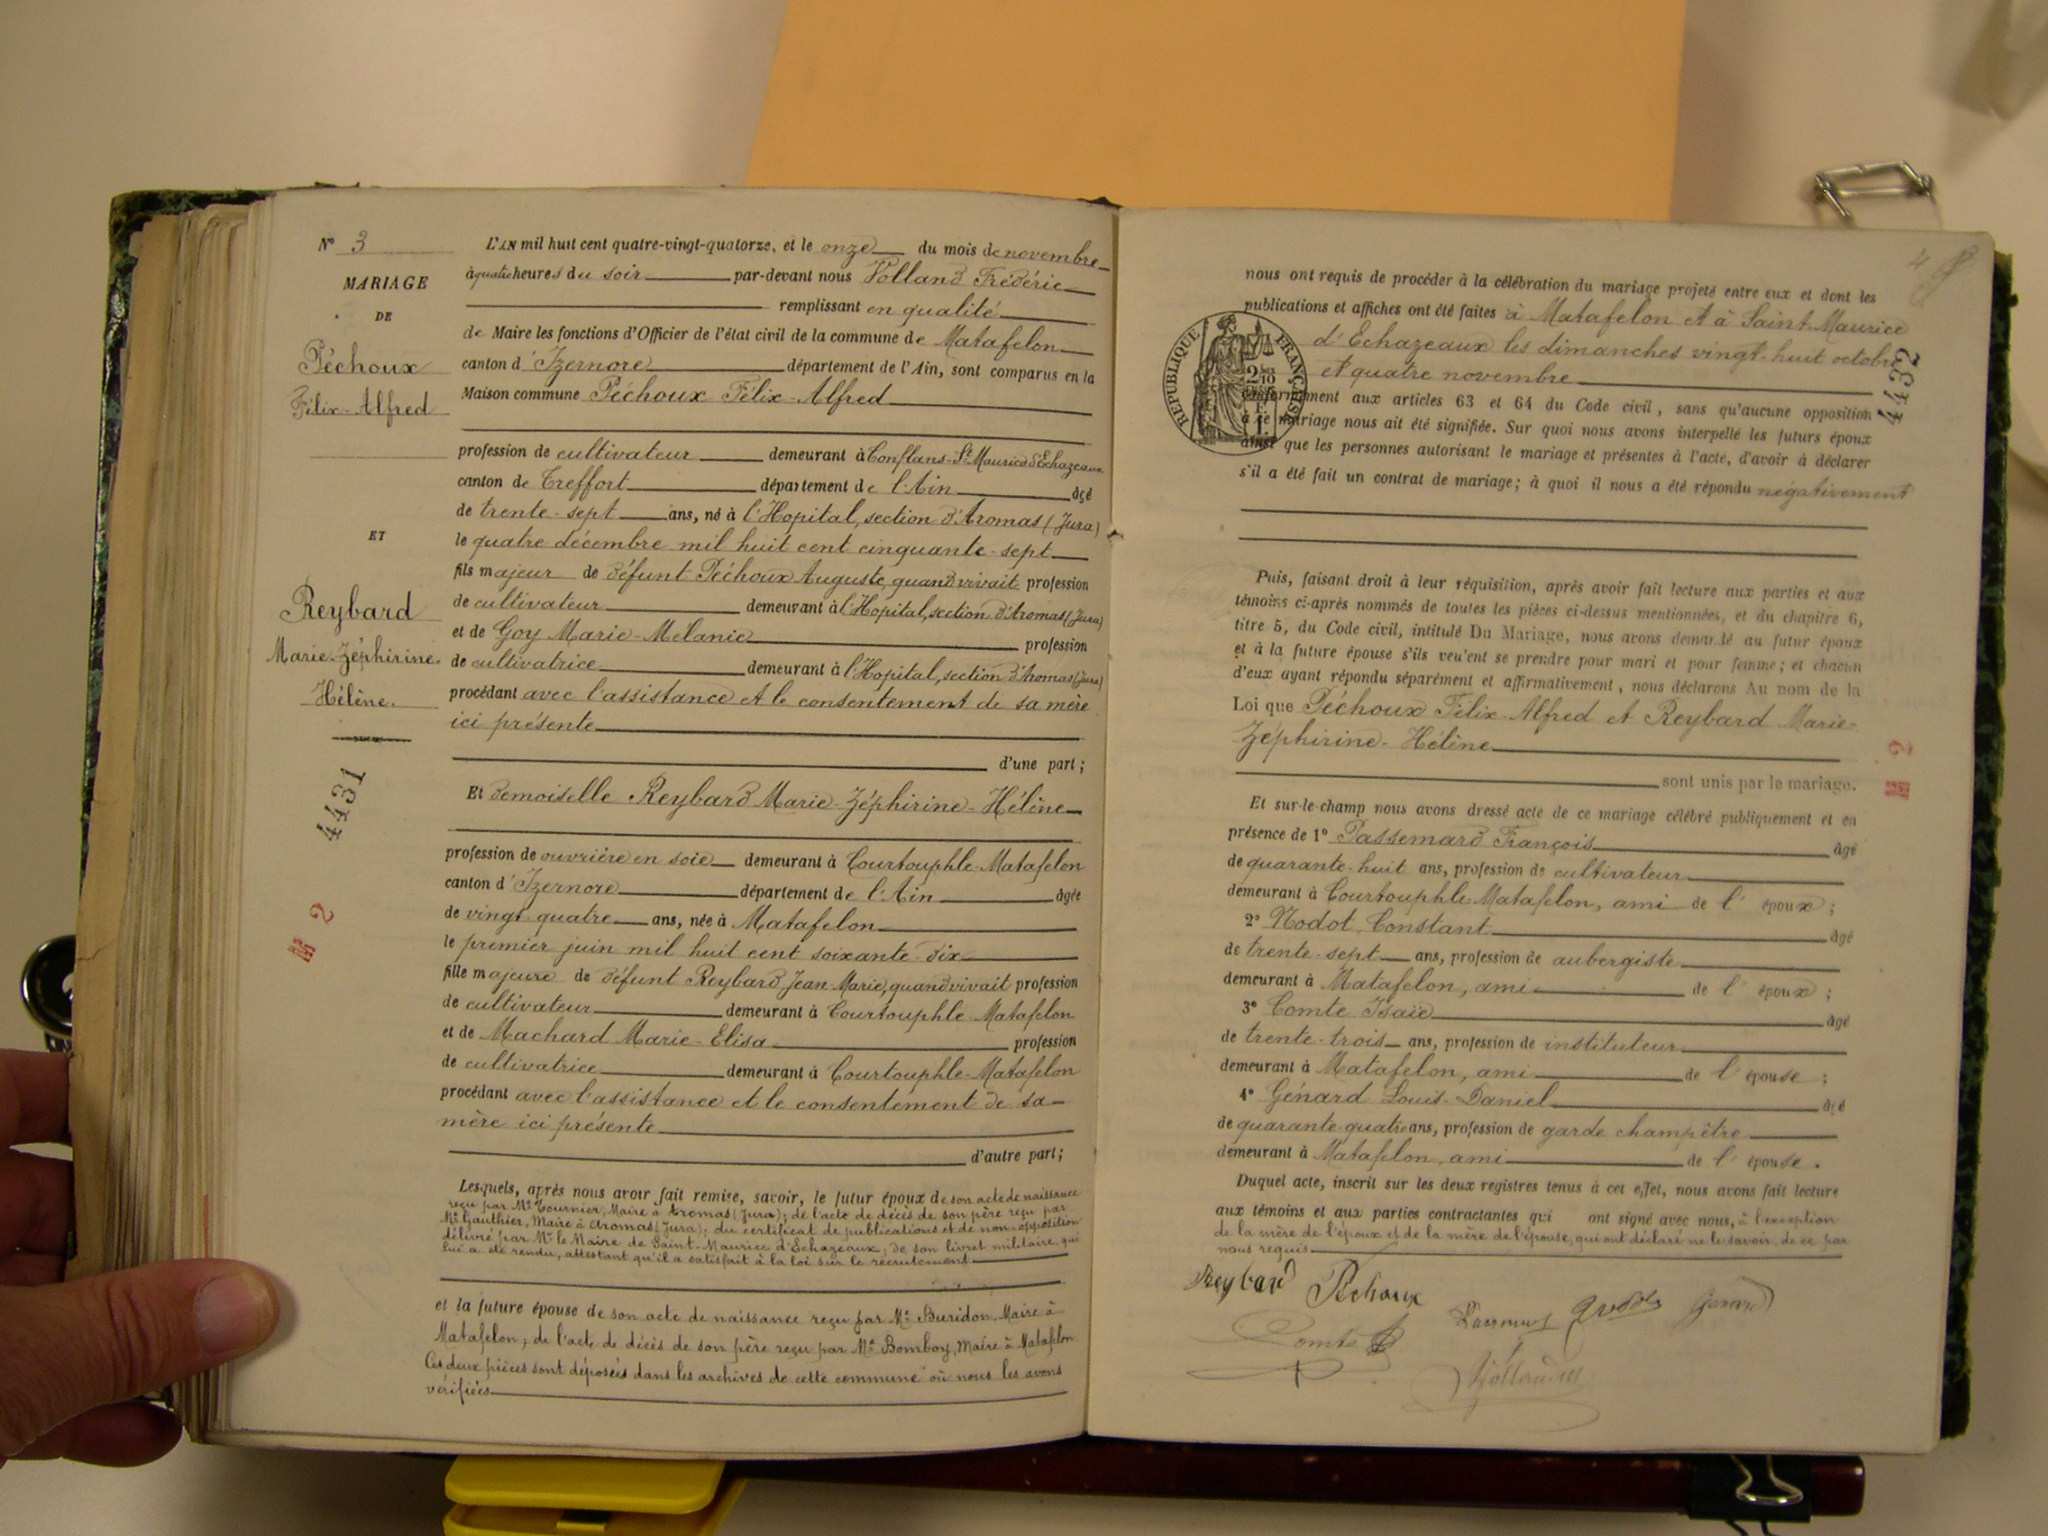 N° 3
MARIAGE
DE
Péchoux
Félix-Alfred
ET
Reybard
Marie-Zéphirine-
Hélène.
4431
2
L'AN mil huit cent quatre-vingt-quatorze, et le onze du mois de novembre
à quatre heures du soir par-devant nous Volland Frédéric
remplissant en qualité
de Maire les fonctions d'Officier de l'état civil de la commune de Matafelon
canton d'Izernore département de l'Ain, sont comparus en la
Maison commune Péchoux Félix-Alfred
profession de cultivateur demeurant à Conflans-St Maurice d'Echazeaux
canton de Treffort département de l'Ain âgé
de trente-sept ans, né à l'Hopital, section d'Aromas (Jura)
le quatre décembre mil huit cent cinquante-sept
fils majeur de défunt Péchoux Auguste, quand vivait profession
de cultivateur demeurant à l'Hopital, section d'Aromas (Jura)
et de Goy Marie-Melanie profession
de cultivatrice demeurant à l'Hopital, section d'Aromas (Jura)
procédant avec l'assistance et le consentement de sa mère
ici présente
d'une part;
Et demoiselle Reybard Marie-Zéphirine-Hélène
profession de ouvrière en soie demeurant à Courtouphle-Matafelon
canton d'Izernore département de l'Ain âgée
de vingt quatre ans, née à Matafelon
le premier juin mil huit cent soixante-dix
fille majeure de défunt Reybard Jean-Marie, quand vivait profession
de cultivateur demeurant à Courtouphle-Matafelon
et de Machard Marie-Elisa profession
de cultivatrice demeurant à Courtouphle-Matafelon
procédant avec l'assistance et le consentement de sa
mère ici présente
d'autre part;
Lesquels, après nous avoir fait remise, savoir, le futur époux de son acte de naissance
reçu par Mr Tournier, Maire à Aromas (Jura); de l'acte de décès de son père reçu par
Mr Gauthier, Maire à Aromas (Jura); du certificat de publications et de non-opposition
délivré par Mr le Maire de Saint-Maurice d'Echazeaux; de son livret militaire, qui
lui a été rendu, attestant qu'il a satisfait à la loi sur le recrutement
et la future épouse de son acte de naissance reçu par Mr Buridon, Maire à
Matafelon; de l'acte de décès de son père reçu par Mr Bomboy, Maire à Matafelon
Ces deux pièces sont déposées dans les archives de cette commune où nous les avons
vérifiées
4
nous ont requis de procéder à la célébration du mariage projeté entre eux et dont les
publications et affiches ont été faites à Matafelon et à Saint-Maurice
d'Echazeaux les dimanches vingt-huit octobre
et quatre novembre
RÉPUBLIQUE FRANÇAISE
4432
conformément aux articles 63 et 64 du Code civil, sans qu'aucune opposition
à ce mariage nous ait été signifiée. Sur quoi nous avons interpellé les futurs époux
ainsi que les personnes autorisant le mariage et présentes à l'acte, d'avoir à déclarer
s'il a été fait un contrat de mariage; à quoi il nous a été répondu négativement
Puis, faisant droit à leur réquisition, après avoir fait lecture aux parties et aux
témoins ci-après nommés de toutes les pièces ci-dessus mentionnées, et du chapitre 6,
titre 5, du Code civil, intitulé Du Mariage, nous avons demandé au futur époux
et à la future épouse s'ils veulent se prendre pour mari et pour femme; et chacun
d'eux ayant répondu séparément et affirmativement, nous déclarons Au nom de la
Loi que Péchoux Félix-Alfred et Reybard Marie-
Zéphirine-Hélène
sont unis par le mariage.
2
Et sur-le-champ nous avons dressé acte de ce mariage célébré publiquement et en
présence de 1° Passemard François âgé
de quarante-huit ans, profession de cultivateur
demeurant à Courtouphle-Matafelon, ami de l'époux;
2° Nodot Constant âgé
de trente-sept ans, profession de aubergiste
demeurant à Matafelon, ami de l'époux;
3° Comte Isaïe âgé
de trente-trois ans, profession de instituteur
demeurant à Matafelon, ami de l'épouse;
4° Génard Louis-Daniel âgé
de quarante-quatre ans, profession de garde champêtre
demeurant à Matafelon, ami de l'épouse.
Duquel acte, inscrit sur les deux registres tenus à cet effet, nous avons fait lecture
aux témoins et aux parties contractantes qui ont signé avec nous, à l'exception
de la mère de l'époux et de la mère de l'épouse, qui ont déclaré ne le savoir, de ce par
nous requis
Reybard Péchoux Genard
Comte
Volland